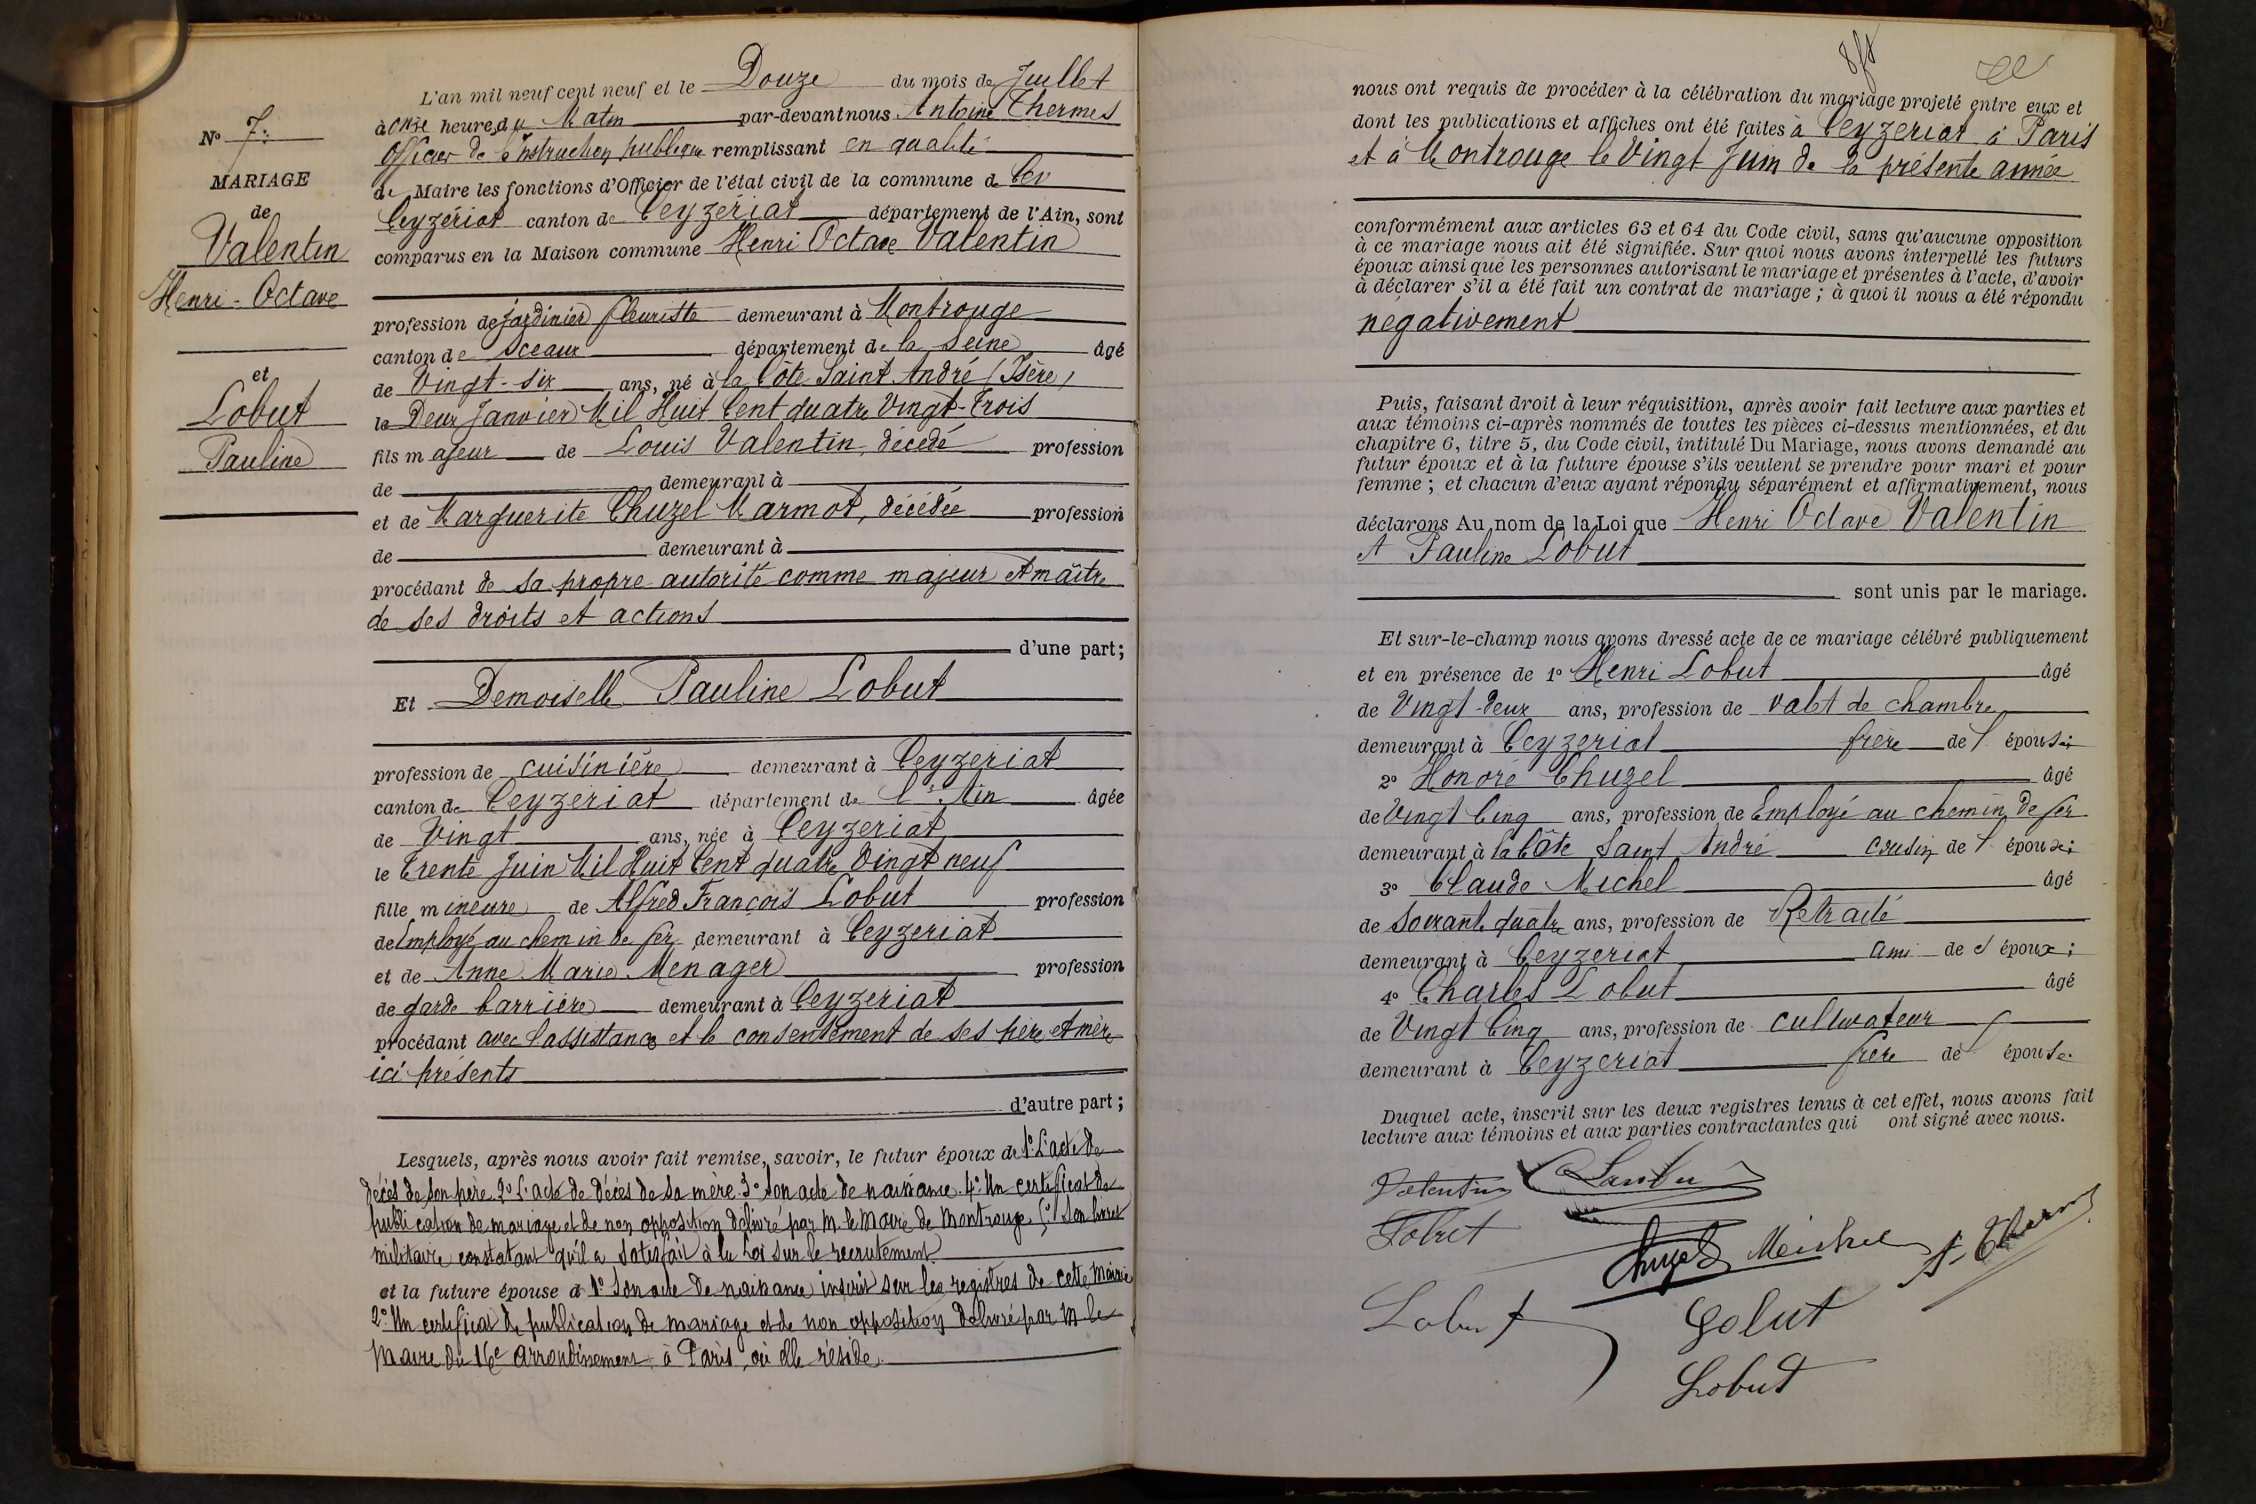 L'an mil neuf cent neuf et le Douze du mois de Juillet
à onze heures du Matin par-devant nous Antoine Thermes
Officier de l'Instruction publique remplissant en qualité
de Maire les fonctions d'Officier de l'état civil de la commune de
Ceyzériat canton de Ceyzeriat département de l'Ain, sont
comparus en la Maison commune Henri Octave Valentin
profession de jardinier fleuriste demeurant à Montrouge
canton de Sceaux département de la Seine âgé
de Vingt-six ans, né à la Côte Saint André (Isère)
le Deux Janvier Mil Huit Cent quatre Vingt-Trois
fils majeur de Louis Valentin, décédé profession
de demeurant à
et de Marguerite Chuzel Marmot, décédée profession
de demeurant à
procédant de sa propre autorité comme majeur et maître
de ses droits et actions
d'une part;
Et Demoiselle Pauline Lobut
profession de cuisinière demeurant à Ceyzeriat
canton de Ceyzeriat département de l'Ain âgée
de Vingt ans, née à Ceyzeriat
le Trente Juin Mil Huit Cent quatre Vingt neuf
fille mineure de Alfred François Lobut profession
de Employé au chemin de fer demeurant à Ceyzeriat
et de Anne Marie Menager profession
de garde barrière demeurant à Ceyzeriat
procédant avec l'assistance et le consentement de ses père et mère
ici présents
d'autre part;
Lesquels, après nous avoir fait remise, savoir, le futur époux de 1° L'acte de
décès de son père 2° L'acte de décès de sa mère. 3° Son acte de naissance. 4° Un certificat de
publication de mariage et de non opposition délivré par M. le Maire de Montrouge 5° Son livret
militaire constatant qu'il a satisfait à la Loi sur le recrutement
et la future épouse d 1° Son acte de naissance inscrit sur les registres de cette Mairie
2° Un certificat de publication de mariage et de non opposition délivré par M le
Maire du 16e arrondissement à Paris, où elle réside.
N° 7
MARIAGE
de
Valentin
Henri-Octave
et
Lobut
Pauline
nous ont requis de procéder à la célébration du mariage projeté entre eux et
dont les publications et affiches ont été faites à Ceyzeriat à Paris
et à Montrouge le Vingt Juin de la présente année
conformément aux articles 63 et 64 du Code civil, sans qu'aucune opposition
à ce mariage nous ait été signifiée. Sur quoi nous avons interpellé les futurs
époux ainsi que les personnes autorisant le mariage et présentes à l'acte, d'avoir
à déclarer s'il a été fait un contrat de mariage; à quoi il nous a été répondu
négativement
Puis, faisant droit à leur réquisition, après avoir fait lecture aux parties et
aux témoins ci-après nommés de toutes les pièces ci-dessus mentionnées, et du
chapitre 6, titre 5, du Code civil, intitulé Du Mariage, nous avons demandé au
futur époux et à la future épouse s'ils veulent se prendre pour mari et pour
femme; et chacun d'eux ayant répondu séparément et affirmativement, nous
déclarons Au nom de la Loi que Henri Octave Valentin
et Pauline Lobut
sont unis par le mariage.
Et sur-le-champ nous avons dressé acte de ce mariage célébré publiquement
et en présence de 1° Henri Lobut âgé
de Vingt-deux ans, profession de valet de chambre
demeurant à Ceyzeriat frère de l'épouse;
2° Honoré Chuzel âgé
de Vingt Cinq ans, profession de Employé au chemin de fer
demeurant à la Côte Saint André cousin de l'époux;
3° Claude Michel âgé
de soixante quatre ans, profession de Retraité
demeurant à Ceyzeriat ami de l'époux;
4° Charles Lobut âgé
de Vingt Cinq ans, profession de cultivateur
demeurant à Ceyzeriat frère de l'épouse.
Duquel acte, inscrit sur les deux registres tenus à cet effet, nous avons fait
lecture aux témoins et aux parties contractantes qui ont signé avec nous.
Valentin
Lobut
Chuzel Michel A. Thermes
Lobut
Lobut